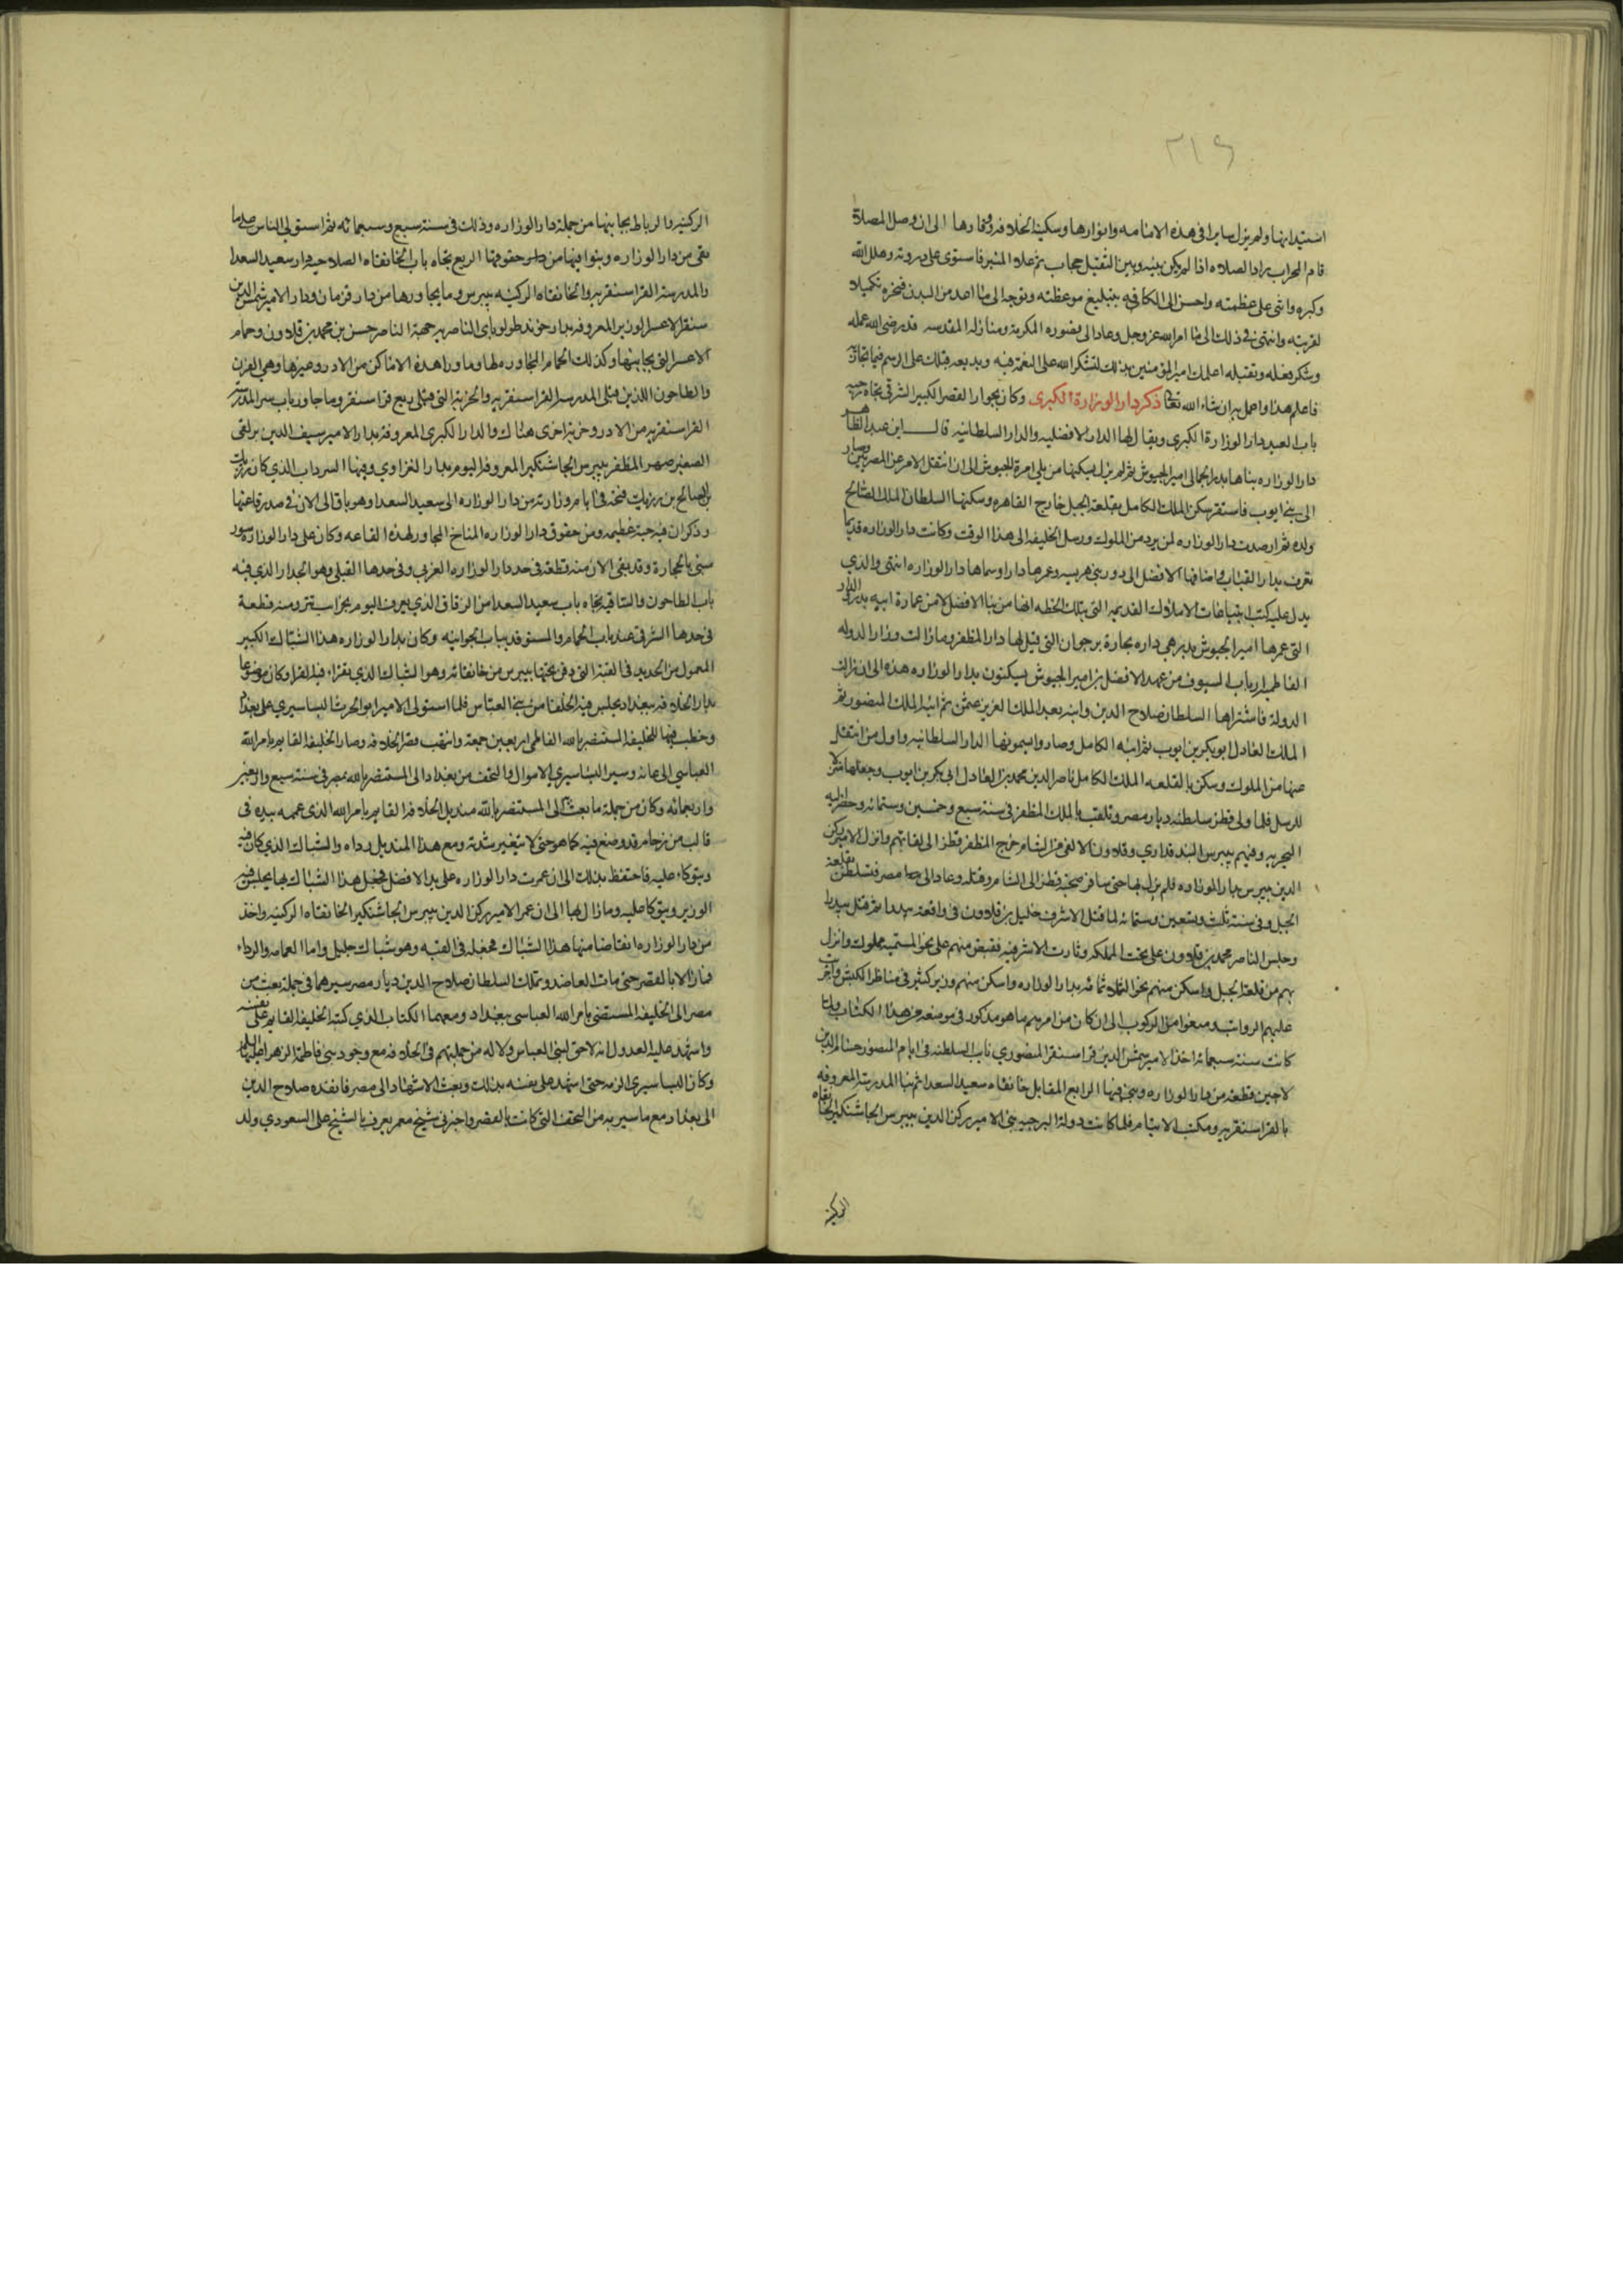 ٢١٤
استيدانها ولم يزل سايرا فى هذه الاقامه وانوارها وسكينة الخلافه ووقارها الى ان وصل المصلاة
قام المحراب برا الصلاه اذا لم يكن بينه وبين التقبل حجاب ثم علا المنبر فاستوى على ذروته وهلل الله
وكبره واثنى على عظمته واحسن الى الكافه بتبليغ موعظته وتوجه الى ما اعد من البدن فنحره تكميلا
لقربته وانتهى فى ذلك الى ما امر الله عز وجل وعاد الى قصوره المكرمه ومنازله المقدسه قد رضى الله عمله
وشكر فعله وتقبله اعلمك امير المومنين بذلك لتشكر الله على النعمة فيه وتذيعه قبلك على الرسم فيما تجاريه
فاعلم هذا واعمل به ان شاء الله تعالى ذكر دار الوزارة الكبرى وكان بجوار القصر الكبير الشرقي تجاه رحبه
باب العيد دار الوزارة الكبرى ويقال لها الدار الافضليه والدار السلطانيه قال ابن عبد الظاهر
دار الوزاره بناها بدر الجمالى امير الجيوش ثم لم يزل يسكنها من يلي امرة الجيوش الى ان انتقل الامر عن المصريين وصار
الى بنى ايوب فاستقر سكن الملك الكامل بقلعة الجبل خارج القاهره وسكنها السلطان الملك الصالح
ولده ثم ارصدت دار الوزاره لمن يرد من الملوك ورسل الخليفه الى هذا الوقت وكانت دار الوزاره قديما
تعرف بدار القباب واضافها الافضل الى دور بنى هريسه وعمرها دارا وسماها دار الوزاره انتهى والذي
يدل عليه كتب ابتياعات الاملاك القديمه التى بتلك الخطه انها من بنا الافضل لا من عمارة ابيه بدر الدار
التى عمرها امير الجيوش بدر هي داره بحارة برجوان التى قيل لها دار المظفر وما زالت وزرا الدوله
الفاطميه ارباب السيوف من عهد الافضل بن امير الجيوش يسكنون بدار الوزاره هذه الى ان زالت
الدولة فاشتراها السلطان صلاح الدين وابنه بعده الملك العزيز عثمن ثم ابنه الملك المنصور ثم
الملك العادل ابو بكر بن ايوب ثم ابنه الكامل وصاروا يسمونها الدار السلطانيه واول من انتقل
عنها من الملوك وسكن بالقلعه الملك الكامل ناصر الدين محمد بن العادل ابى بكر بن ايوب وجعلها منزلا
للرسل فلما ولى قطز سلطنه ديار مصر وتلقب بالملك المظفر فى سنة سبع وخمسين وستمائه وحضر اليه
البحريه وفيهم بيبرس البندقداري وقلاوون الالفى من الشام خرج المظفر قطز الى لقائهم وانزل الامير ركن
الدين بيبرس بدار الوزاره فلم يزل بها حتى سافر صحبة قطز الى الشام وقتله وعاد الى مصر فتسلطن بقلعة
الجبل وفى سنة ثلث وتسعين وستمائه لما قتل الاشرف خليل بن قلاوون فى واقعة بيدرا ثم قتل بيدرا
وجلس الناصر محمد بن قلاوون على تخت الملك وثارت الاشرفيه فقبض منهم على نحو الستميه مملوك وانزل
بهم من قلعة الجبل واسكن منهم نحو الثلاثمائه بدار الوزاره واسكن منهم وزير كثير فى مناظر الكبش واجريت
عليهم الرواتب ومنعوا من الركوب الى ان كان من امرهم ما هو مذكور فى موضعه من هذا الكتاب ولما
كانت سنة سبعمائه اخذ الامير شمس الدين قراسنقر المنصوري نايب السلطنه فى ايام المنصور حسام الدين
لاجين قطعة من دار الوزاره وبنى فيها الربع المقابل خانقاه سعيد السعدا ثم بنا المدرسة المعروفه
بالقراسنقريه ومكتب الايتام فلما كانت دولة البرجيه بنى الامير ركن الدين بيبرس الجاشنكير الخانقاه
الركنيه
الركنيه والرباط بجانبها من جملة دار الوزاره وذلك فى سنة تسع وسبعمائه ثم استولى الناس على ما
بقى من دار الوزاره وبنوا فيها من حقوقها الربع تجاه باب الخانقاه الصلاحيه دار سعيد السعدا
والمدرسة القراسنقريه والخانقاه الركنيه بيبرس وما يجاورها من دار قزمان ودار الامير شمس الدين
سنقر الاعسر الوزير المعروفه بدار خوند طولوباى الناصريه جهة الناصر حسن بن محمد بن قلاوون وحمام
الاعسر التى بجانبها وكذلك الحمام المجاوره لها وما وراء هذه الاماكن من الادر وغيرها وهي الفرن
والطاحون اللذين قبلى المدرسة القراسنقريه والخربة التى قبلى ربع قراسنقر وما جاور باب سر المدرسة
القراسنقريه من الادر وخربة اخرى هناك والدار الكبرى المعروفه بدار الامير سيف الدين برلغى
الصغير صهر المظفر بيبرس الجاشنكير المعروفه اليوم بدار الغزاوي وفيها السرداب الذي كان رزيك
بن الصالح بن رزيك فتحه فى ايام وزارته من دار الوزاره الى سعيد السعدا وهو باق الى الان فى صدر قاعتها
وذكر ان فيه حية عظيمه ومن حقوق دار الوزاره المناخ المجاور لهذه القاعه وكان على دار الوزاره سور
مبنى بالحجارة وقد بقى الان منه قطعة فى حد دار الوزاره الغربي وفى حدها القبلى وهو الجدار الذي فيه
باب الطاحون والساقيه تجاه باب سعيد السعدا من الزقاق الذي يعرف اليوم بخرايب تتر ومنه قطعة
فى حدها الشرقى عند باب الحمام والمستوقد بباب الجوانيه وكان بدار الوزاره هذا الشباك الكبير
المعمول من الحديد فى القبة التى دفن تحتها بيبرس من خانقاته وهو الشباك الذي يقراء فيه القرا وكان موضوعا
بدار الخلافه ببغداد يجلس فيه الخلفا من بنى العباس فلما استولى الامير ابو الحرث البساسيري على بغداد
وخطب فيها للخليفه المستنصر بالله الفاطمي اربعين جمعة وانتهب قصر الخلافه وصار الخليفه القايم بامر الله
العباسي الى عانه وسير البساسيري الاموال والتحف من بغداد الى المستنصر بالله بمصر فى سنة سبع واربعين
واربعمائه وكان من جملة ما بعث الى المستنصر بالله منديل الخلافه القايم بامر الله الذى عممه بيده فى
قالب من رخام قد وضع فيه كما هو حتى لا يتغير شدته ومع هذا المنديل رداه والشباك الذي كان فيه
ويتوكاء عليه فاحتفظ بذلك الى ان عمرت دار الوزاره على يد الافضل فجعل هذا الشباك بها يجلس فيه
الوزير ويتوكا عليه وما زال بها الى ان عمر الامير ركن الدين بيبرس الجاشنكير الخانقاه الركنيه واخذ
من دار الوزاره انقاضا منها هذا الشباك فجعله فى القبه وهو شباك جليل واما العمامه والرداء
فما زالا بالقصر حتى مات العاضد وتملك السلطان صلاح الدين ديار مصر سيرهما فى جملة بعث من
مصر الى الخليفه المستضى بامر الله العباسى ببغداد ومعهما الكتاب الذي كتبه الخليفه القايم على نفسه
واشهد عليه العدول انه لا حق لبنى العباس ولا له من جملتهم فى الخلافه مع وجود بنى فاطمة الزهرا عليها السلم
وكان البساسيرى الزمه حتى اشهد على نفسه بذلك وبعث الاشهاد الى مصر فانفذه صلاح الدين
الى بغداد مع ما سير به من التحف التى كانت بالقصر واخبرنى شيخ معمر يعرف بالشيخ على السعودي ولد